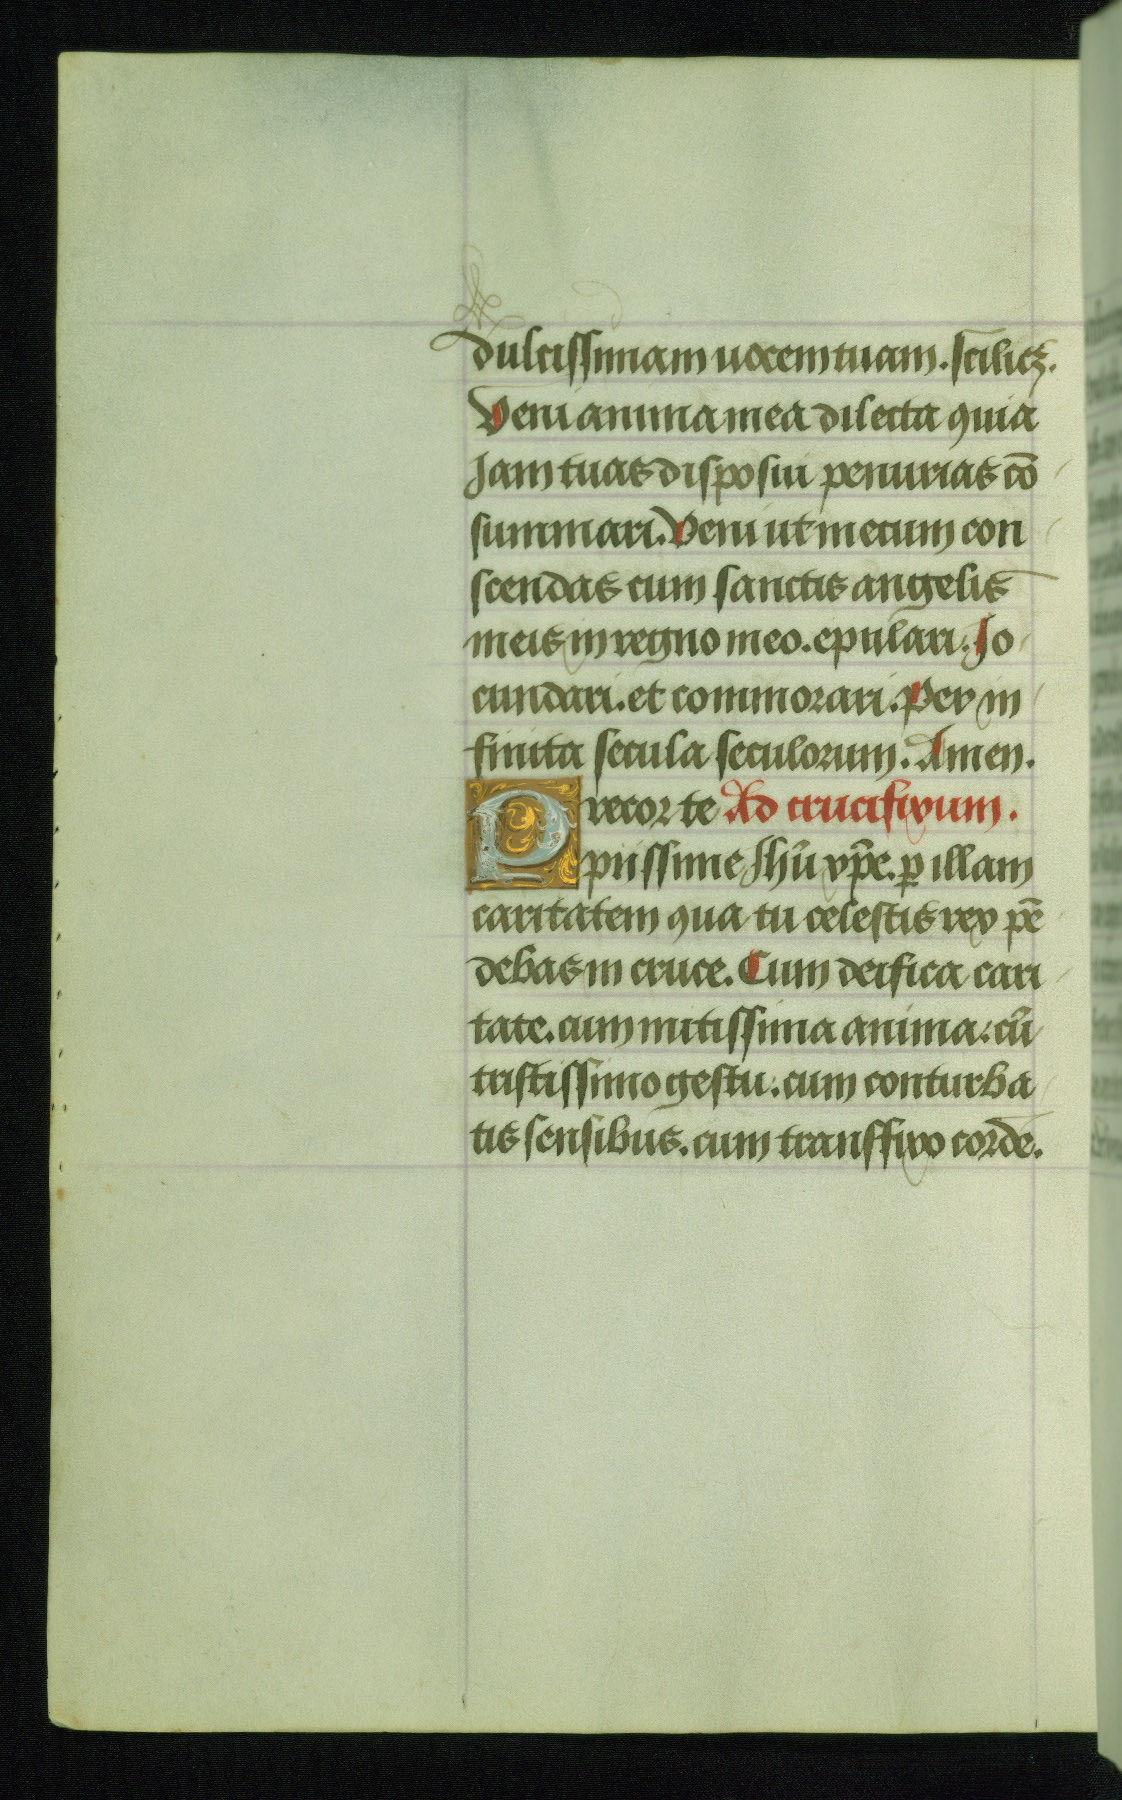 dulcissimam uocem tuam. scīlicꝫ.
Veni anima mea dilecta quia
Jam tuas disposui penurias cō
summari. Veni ut mecum con
scendas cum sanctis angelis
meis in regno meo. epulari. Jo
cundari. et commorari. Per in
finita secula seculorum. Amen.
Precor te Ad crucifixum.
piissime Jhū xp̄e. ꝑ illam
caritatem qua tu celestis rex pē
debas in cruce. Cum deifica cari
tate. cum mitissima anima. cū
tristissimo gestu. cum conturba
tis sensibus. cum transfixo corde.